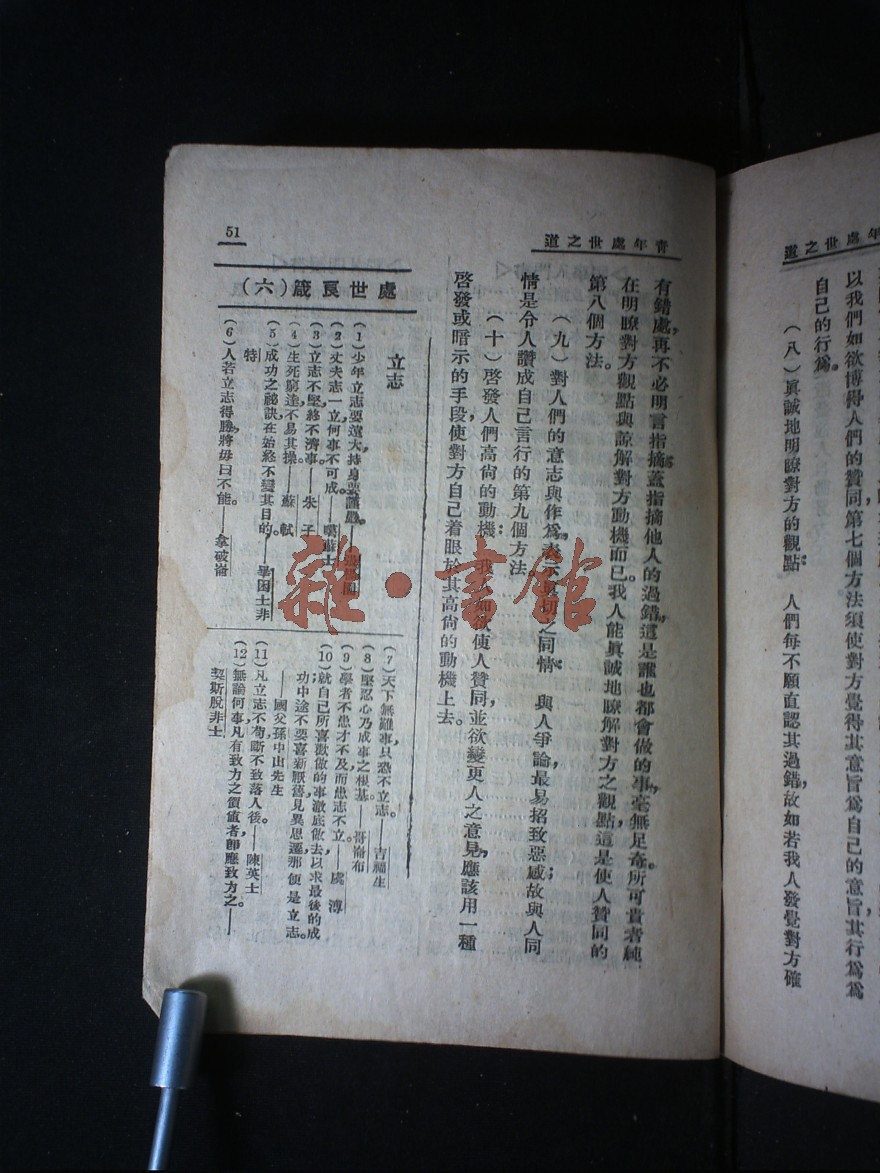 青年處世之道
以我們如欲博得人們的贊同，第七個方法須使對方覺得其意旨爲自己的意旨，其行爲爲
自己的行爲。
（八）眞誠地明瞭對方的觀點： 人們每不願直認其過錯，故如若我人發覺對方確
青年處世之道
51
有錯處，再不必明言指摘，蓋指摘他人的過錯，這是誰也都會做的事，毫無足奇，所可貴者，純
在明瞭對方觀點與諒解對方動機而已，我人能眞誠地瞭解對方之觀點，這是使人贊同的
第八個方法。
（九）對人們的意志與作爲，表示眞切之同情： 與人爭論，最易招致惡感，故與人同
情，是令人讚成自己言行的第九個方法。
（十）啓發人們高尙的動機： 我人如欲使人贊同，並欲變更人之意見，應該用一種
啓發或暗示的手段，使對方自己着眼於其高尙的動機上去。
處世良箴（六）
立志
（1）少年立志要遠大，持身要謹嚴。——
（2）丈夫志一立，何事不可成。——噶蘇士
（3）立志不堅，終不濟事。——朱 子
（4）生死窮達，不易其操。——蘇 軾
（5）成功之祕訣，在始終不變其目的。——畢因士非
特
（6）人若立志得勝，將毋曰不能。——拿破崙
（7）天下無難事，只恐不立志。——吉福生
（8）堅忍心乃成事之根基。——哥崙布
（9）學者不患才不及，而患志不立。——虞 溥
（10）就自己所喜歡做的事，澈底做去，以求最後的成
功；中途不要喜新厭舊，見異思遷，那便是立志。
——國父孫中山先生
（11）凡立志不苟，斷不致落人後。——陳英士
（12）無論何事，凡有致力之價値者，卽應致力之。——
契斯脫非士
雜·書館